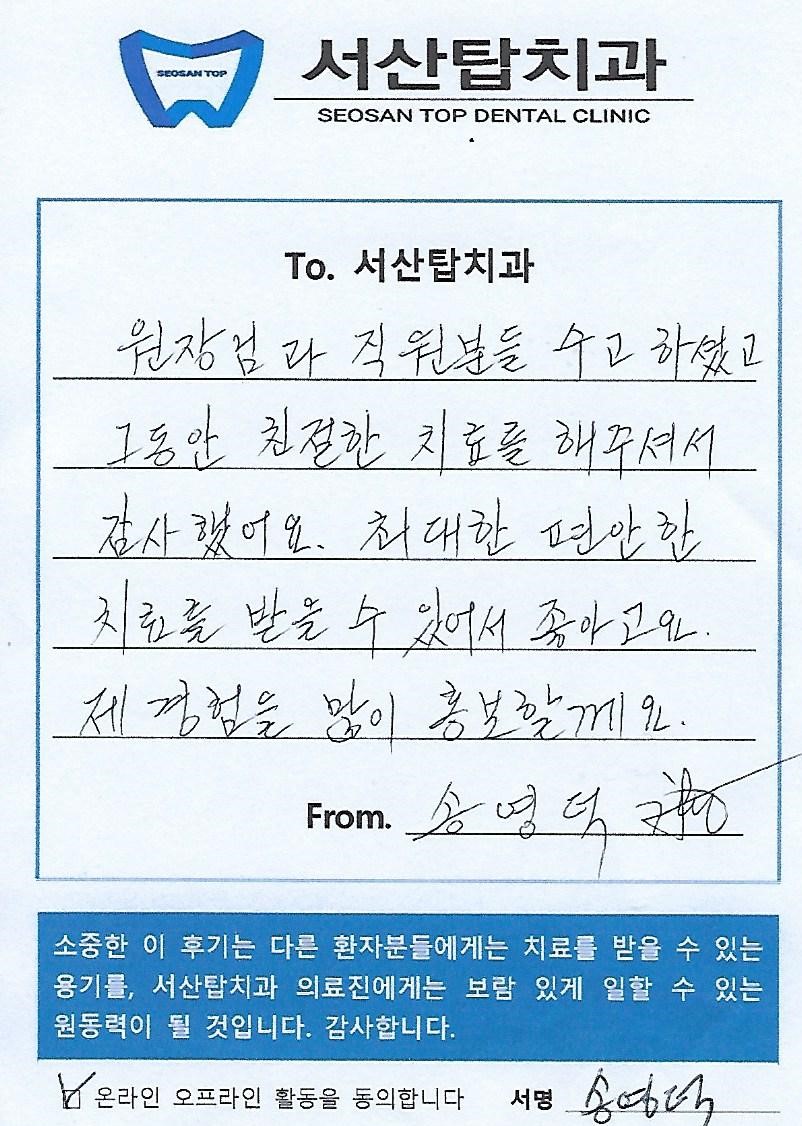 SEOSAN TOP
서산탑치과
SEOSAN TOP DENTAL CLINIC
To. 서산탑치과
원장님과 직원분들 수고 하셨고
그동안 친절한 치료를 해주셔서
감사했어요. 최대한 편안한
치료를 받을 수 있어서 좋아고요.
제 경험을 많이 홍보할께요.
From. 송영덕
소중한 이 후기는 다른 환자분들에게는 치료를 받을 수 있는
용기를, 서산탑치과 의료진에게는 보람 있게 일할 수 있는
원동력이 될 것입니다. 감사합니다.
온라인 오프라인 활동을 동의합니다 서명 송영덕